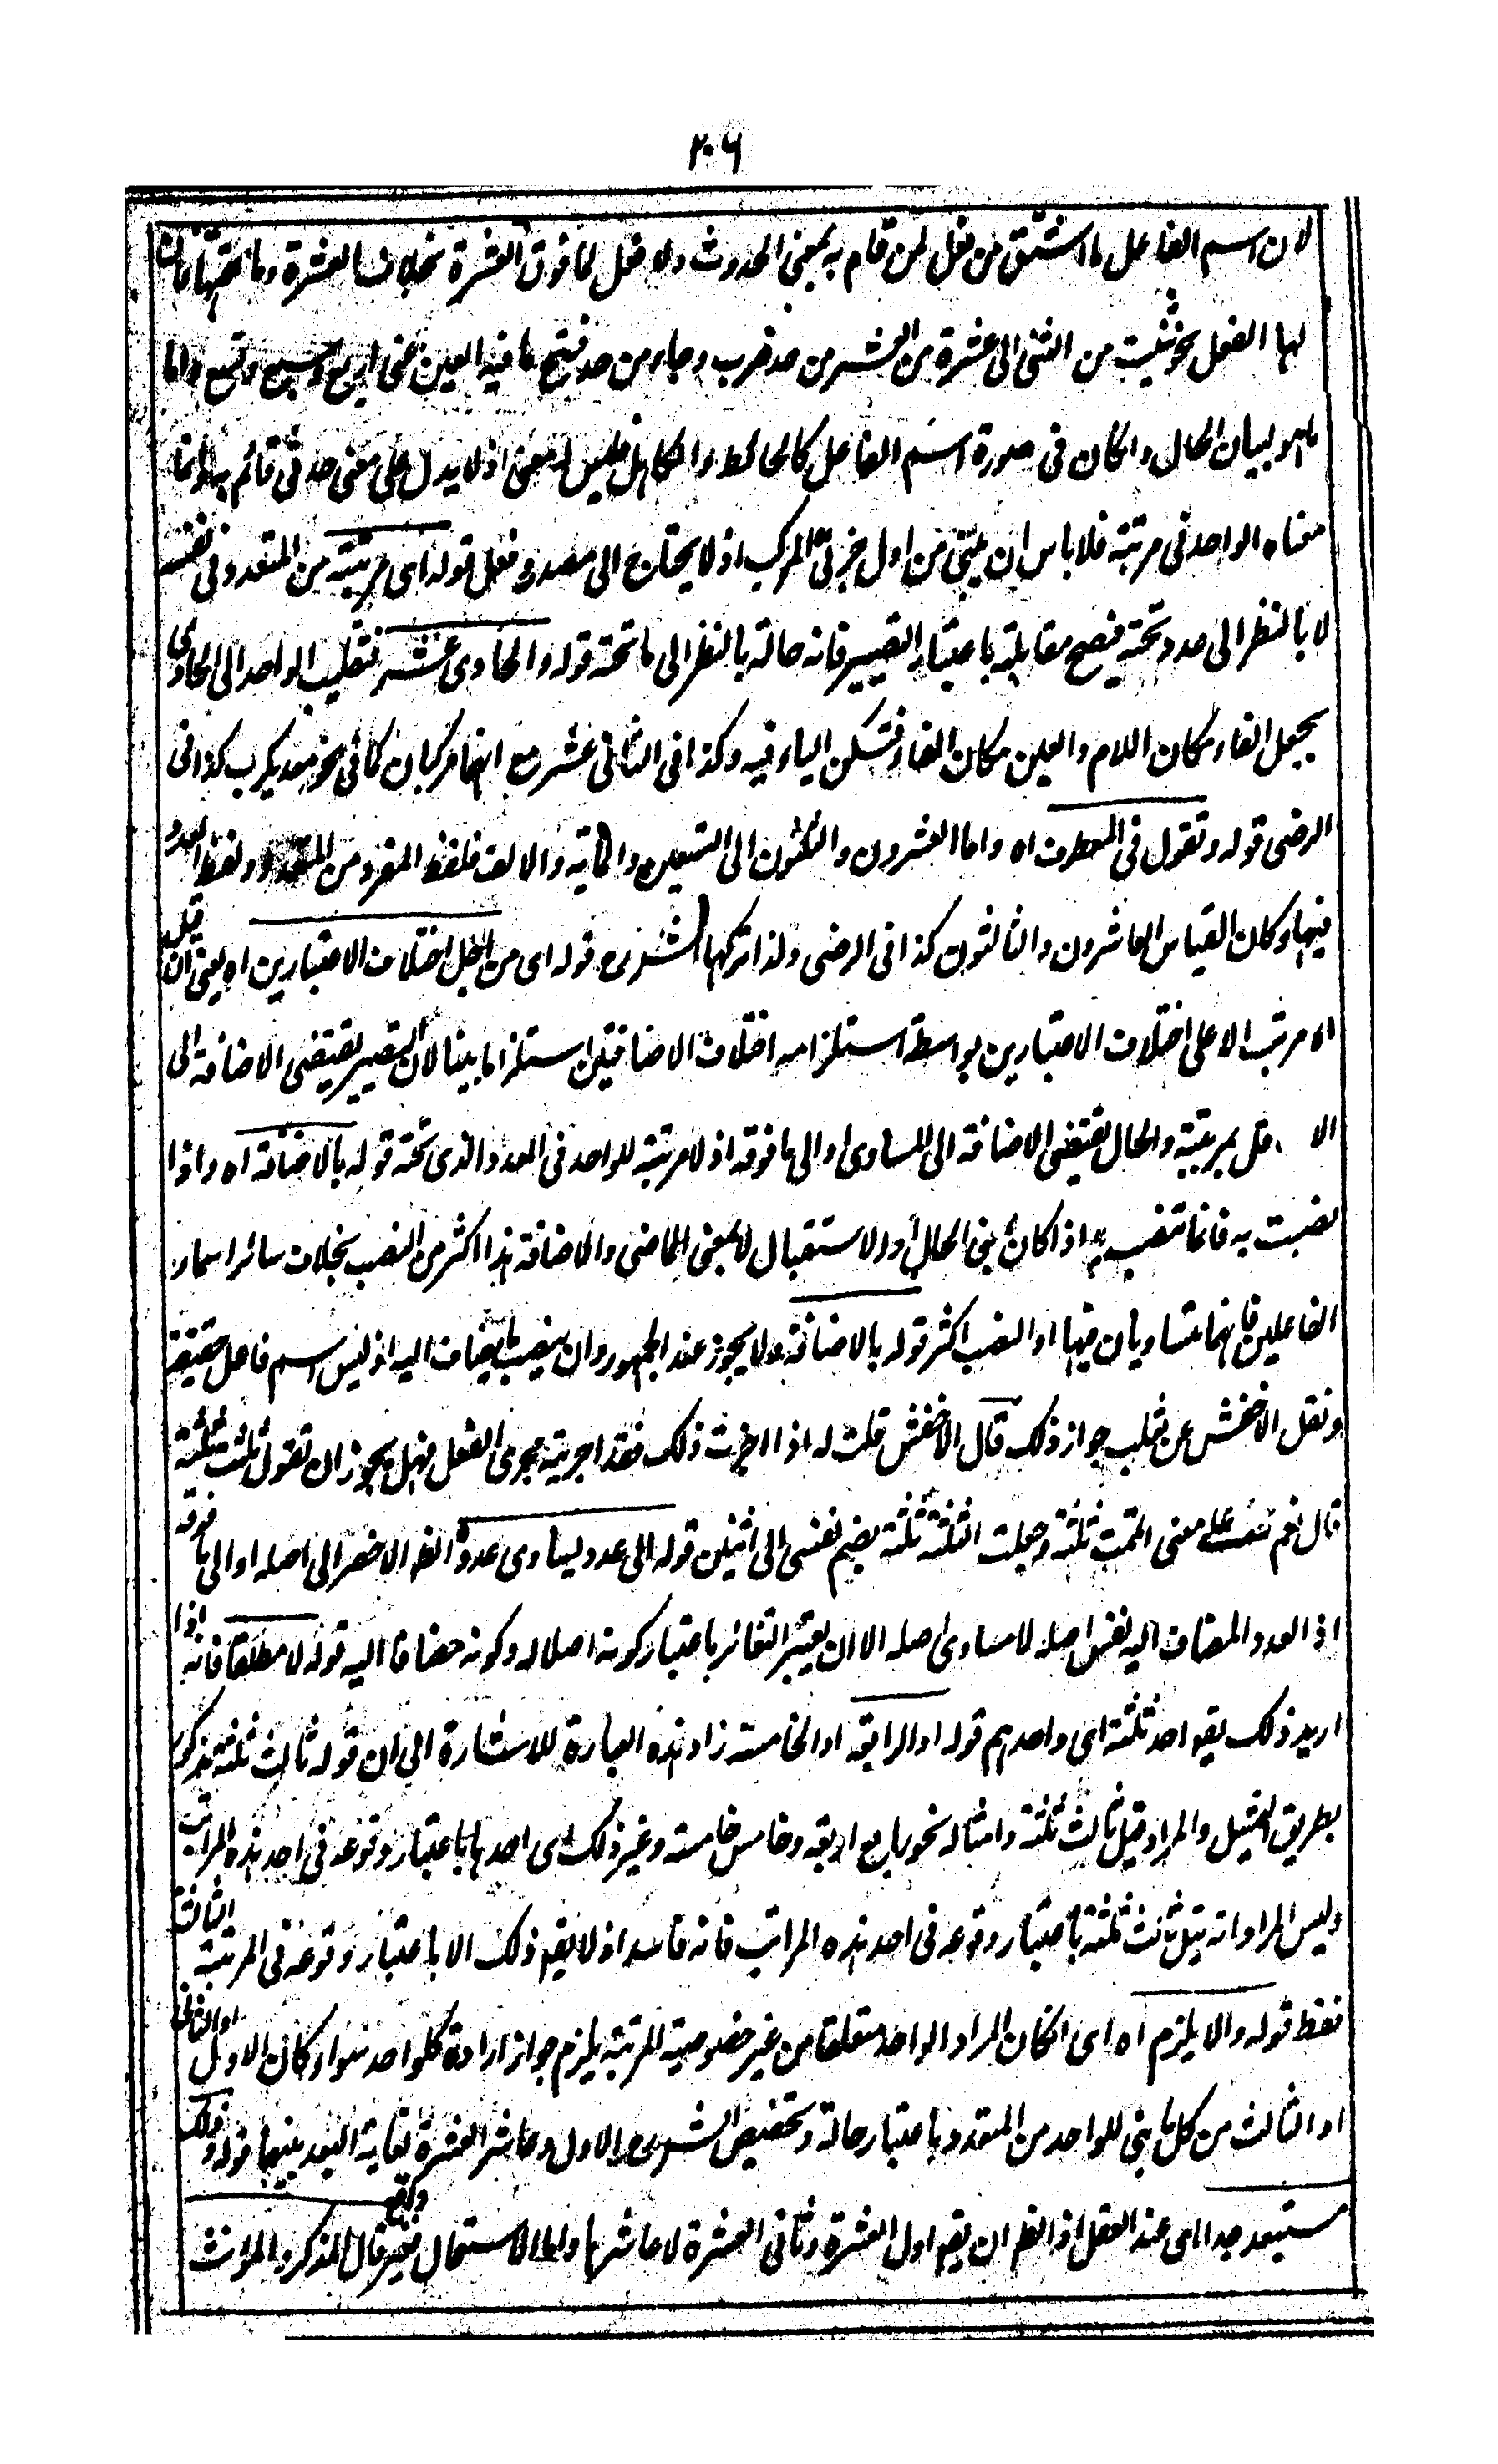 ٢٠٦
لان اسم الفاعل ما اشتق من فعل لمن قام به بمعنى الحدوث ولا فعل لما فوق العشرة بخلاف العشرة وما تحتها فان
لها الفعل نحو ثنيت من الثنى الى عشرة من العشر من حد ضرب وجاء من حد فتح ما فيه العين اعنى اربع وسبع وتسع واما
ما هو لبيان الحال وان كان فى صورة اسم الفاعل كالحائط والكاهل فليس له معنى اذ لا يدل على معنى حدثى قائم به وانما
معناه الواحد فى مرتبة فلا باس ان يبنى من اول جزئى المركب اذ لا يحتاج الى مصدر وفعل قوله اى مرتبته من المتعدد فى نفسه
لا بالنظر الى عدد تحته فيصح مقابلته باعتبار التصيير فانه حالة بالنظر الى ما تحته قوله والحادى عشر بتقليب الواحد الى الحادى
بجعل الفاء مكان اللام والعين مكان الفاء فتسكن الياء فيه وكذا فى الثانى عشر مع انهما مركبان كما فى نحو معديكرب كذا فى
الرضى قوله وتقول فى المعطوف اه واما العشرون والثلثون الى التسعين والمائة والالف فلفظ المفرد من المتعدد ولفظ العدد
فيها وكان القياس العاشرون والثالثون كذا فى الرضى ولذا تركها الشهرى قوله اى من اجل اختلاف الاعتبارين اه يعنى ان قيل
اه مرتب الا على اختلاف الاعتبارين بواسطة استلزامه اختلاف الاضافتين استلزاما بينا لان التصيير يقتضى الاضافة الى
الا قل بمرتبة والحال يقتضى الاضافة الى المساوى او الى ما فوقه اذ لا مرتبة للواحد فى العدد الذى تحته قوله بالاضافة اه واذا
نصبت به فانما تنصب به اذا كان بمعنى الحال او الاستقبال لا بمعنى الماضى والاضافة هذا اكثر من النصب بخلاف سائر اسماء
الفاعلين فانهما متساويان فيها او النصب اكثر قوله بالاضافة ولا يجوز عند الجمهور ان ينصب ما يضاف اليه اذ ليس اسم فاعل حقيقة
ونقل الاخفش عن ثعلب جواز ذلك قال الاخفش قلت له اذا اجزت ذلك فقد اجريته مجرى الفعل فهل يجوز ان تقول ثلثت ثلثة
قال نعم على معنى اتممت ثلثة وجعلت الثلثة ثلثة بضم نفسى الى اثنين قوله الى عدد يساوى عدده الظ الاخصر الى اصله او الى ما فوقه
اذ العدد المضاف اليه نفس اصله لا مساوى اصله الا ان يعتبر التغائر باعتبار كونه اصلا له وكونه مضافا اليه قوله لا مطلقا فانه اذا
اريد ذلك يقو احد ثلثة اى واحدهم قوله او الرابعة او الخامسة زاد هذه العبارة للاشارة الى ان قوله ثالث ثلثة مذكور
بطريق التمثيل والمراد قيل ثالث ثلثة وامثاله نحو رابع اربعة وخامس خامسة وغير ذلك اى احدها باعتبار وقوعه فى احد هذه المراتب
وليس المراد انه قيل ثالث ثلثة باعتبار وقوعه فى احد هذه المراتب فانه فاسد اذ لا يقم ذلك الا باعتبار وقوعه فى المرتبة الثالثة
فقط قوله والا يلزم اه اى ان كان المراد الواحد مطلقا من غير خصوصية المرتبة يلزم جواز ارادة كلواحد سواء كان الاول او الثانى
او الثالث من كل ما بنى للواحد من المتعدد باعتبار حالة وتخصيص الشهرى الاول وعاشر العشرة لغاية البعد بينهما قوله وذلك
مستبعد جدا اى عند العقل اذ الظ ان يقم اول العشرة وثانى العشرة لا عاشرها واما الاستعمال فغير واقع قال المذكر والمؤنث